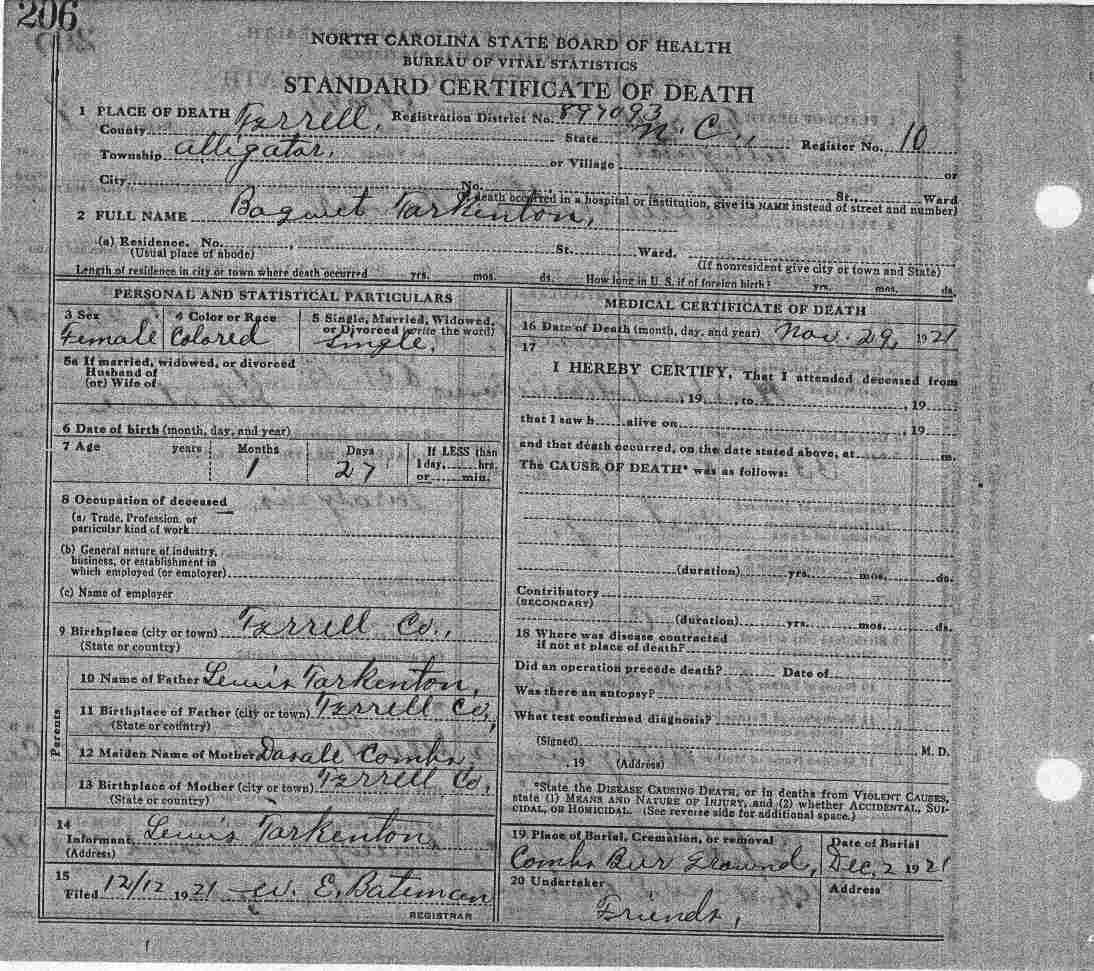 206
NORTH CAROLINA STATE BOARD OF HEALTH
BUREAU OF VITAL STATISTICS
STANDARD CERTIFICATE OF DEATH
1 PLACE OF DEATH Registration District No. 897093
County Tyrrell, State N. C., Register No. 10
Township Alligator, or Village or
City No. St., Ward
(If death occurred in a hospital or institution, give its NAME instead of street and number)
2 FULL NAME Tarkenton,
(a) Residence. No. , St. Ward.
(Usual place of abode) (If nonresident give city or town and State)
Length of residence in city or town where death occurred yrs. mos. ds. How long in U. S. if of foreign birth? yrs. mos. ds.
PERSONAL AND STATISTICAL PARTICULARS
3 Sex 4 Color or Race 5 Single, Married, Widowed, or Divorced (write the word)
Female Colored Single.
5a If married, widowed, or divorced
Husband of
(or) Wife of
6 Date of birth (month, day, and year)
7 Age years Months Days If LESS than
1 27 1 day, hrs.
or min.
8 Occupation of deceased
(a) Trade, Profession, or
particular kind of work
(b) General nature of industry,
business, or establishment in
which employed (or employer)
(c) Name of employer
9 Birthplace (city or town) Tyrrell Co.,
(State or country)
Parents
10 Name of Father Lewis Tarkenton,
11 Birthplace of Father (city or town) Tyrrell Co.,
(State or country)
12 Maiden Name of Mother Combs,
13 Birthplace of Mother (city or town) Tyrrell Co.,
(State or country)
14
Informant Lewis Tarkenton,
(Address)
15
Filed 12/12 1921 W. E. Bateman
REGISTRAR
MEDICAL CERTIFICATE OF DEATH
16 Date of Death (month, day, and year) Nov. 29, 1921
17
I HEREBY CERTIFY, That I attended deceased from
, 19 , to , 19
that I saw h alive on , 19
and that death occurred, on the date stated above, at m.
The CAUSE OF DEATH* was as follows:
(duration) yrs. mos. ds.
Contributory
(SECONDARY)
(duration) yrs. mos. ds.
18 Where was disease contracted
if not at place of death?
Did an operation precede death? Date of
Was there an autopsy?
What test confirmed diagnosis?
(Signed) M. D.
, 19 (Address)
*State the DISEASE CAUSING DEATH, or in deaths from VIOLENT CAUSES,
state (1) MEANS AND NATURE OF INJURY, and (2) whether ACCIDENTAL, SUI-
CIDAL, OR HOMICIDAL. (See reverse side for additional space.)
19 Place of Burial, Cremation, or removal Date of Burial
Combs Bur Ground, Dec, 2 1921
20 Undertaker Address
Friends,